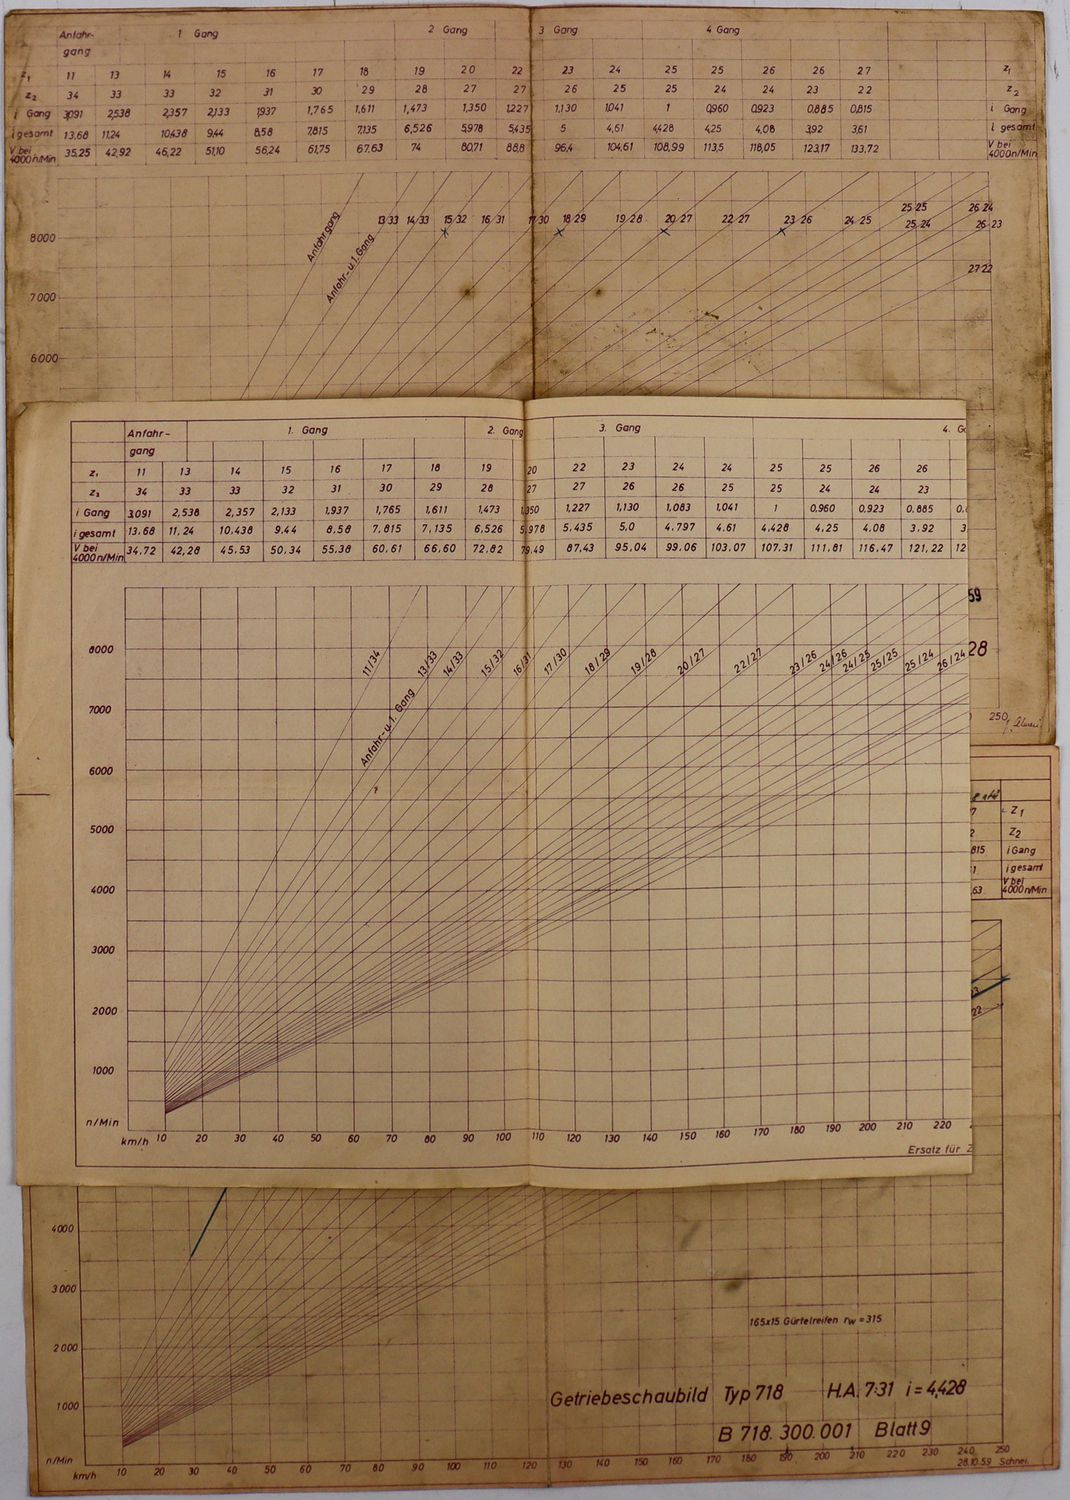 Anfahr- 1 Gang 2 Gang 3 Gang 4 Gang
gang
z1 11 13 14 15 16 17 18 19 20 22 23 24 25 25 26 26 27 z1
z2 34 33 33 32 31 30 29 28 27 27 26 25 25 24 24 23 22 z2
i Gang 3,091 2,538 2,357 2,133 1,937 1,765 1,611 1,473 1,350 1,227 1,130 1,041 1 0,960 0,923 0,885 0,815 i Gang
i gesamt 13.68 11,24 10,438 9,44 8,58 7,815 7,135 6,526 5,978 5,435 5 4,61 4,428 4,25 4,08 3,92 3,61 i gesamt
V bei 35,25 42,92 46,22 51,10 56,24 61,75 67,63 74 80,71 88,8 96,4 104,61 108,99 113,5 118,05 123,17 133,72 V bei
4000n/Min 4000n/Min
25 25 26 24
13/33 14/33 15/32 16/31 17/30 18/29 19/28 20/27 22/27 23/26 24/25 25/24 26/23
Anfahrgang
Anfahr-u.1.Gang
8000
27 22
7000
6000
Anfahr- 1. Gang 2. Gang 3. Gang 4. G
gang
z1 11 13 14 15 16 17 18 19 20 22 23 24 24 25 25 26 26
z2 34 33 33 32 31 30 29 28 27 27 26 26 25 25 24 24 23
i Gang 3,091 2,538 2,357 2,133 1,937 1,765 1,611 1,473 1,350 1,227 1,130 1,083 1,041 1 0,960 0,923 0.885 0.
i gesamt 13.68 11,24 10.438 9.44 8.58 7.815 7,135 6,526 5,978 5.435 5,0 4.797 4.61 4.428 4.25 4.08 3.92 3.
V bei 34.72 42,28 45.53 50,34 55,38 60,61 66,60 72,82 79,49 87,43 95,04 99,06 103,07 107.31 111,81 116,47 121,22 12
4000n/Min
59
8000 11/34 13/33 14/33 15/32 16/31 17/30 18/29 19/28 20/27 22/27 23/26 24/26 24/25 25/25 25/24 26/24 28
Anfahr-u.1. Gang
7000
250
6000
5000
4000
3000
2000
1000
n/Min
km/h 10 20 30 40 50 60 70 80 90 100 110 120 130 140 150 160 170 180 190 200 210 220
Ersatz für Z
7 Z1
2 Z2
815 i Gang
1 i gesamt
,63 V bei
4000n/Min
22
4000
3000
165x15 Gürtelreifen rw = 315
2000
Getriebeschaubild Typ 718 H.A. 7:31 i = 4,428
1000
B 718. 300. 001 Blatt 9
n/Min
km/h 10 20 30 40 50 60 70 80 90 100 110 120 130 140 150 160 170 180 190 200 210 220 230 240 250
28.10.59 Schnei.